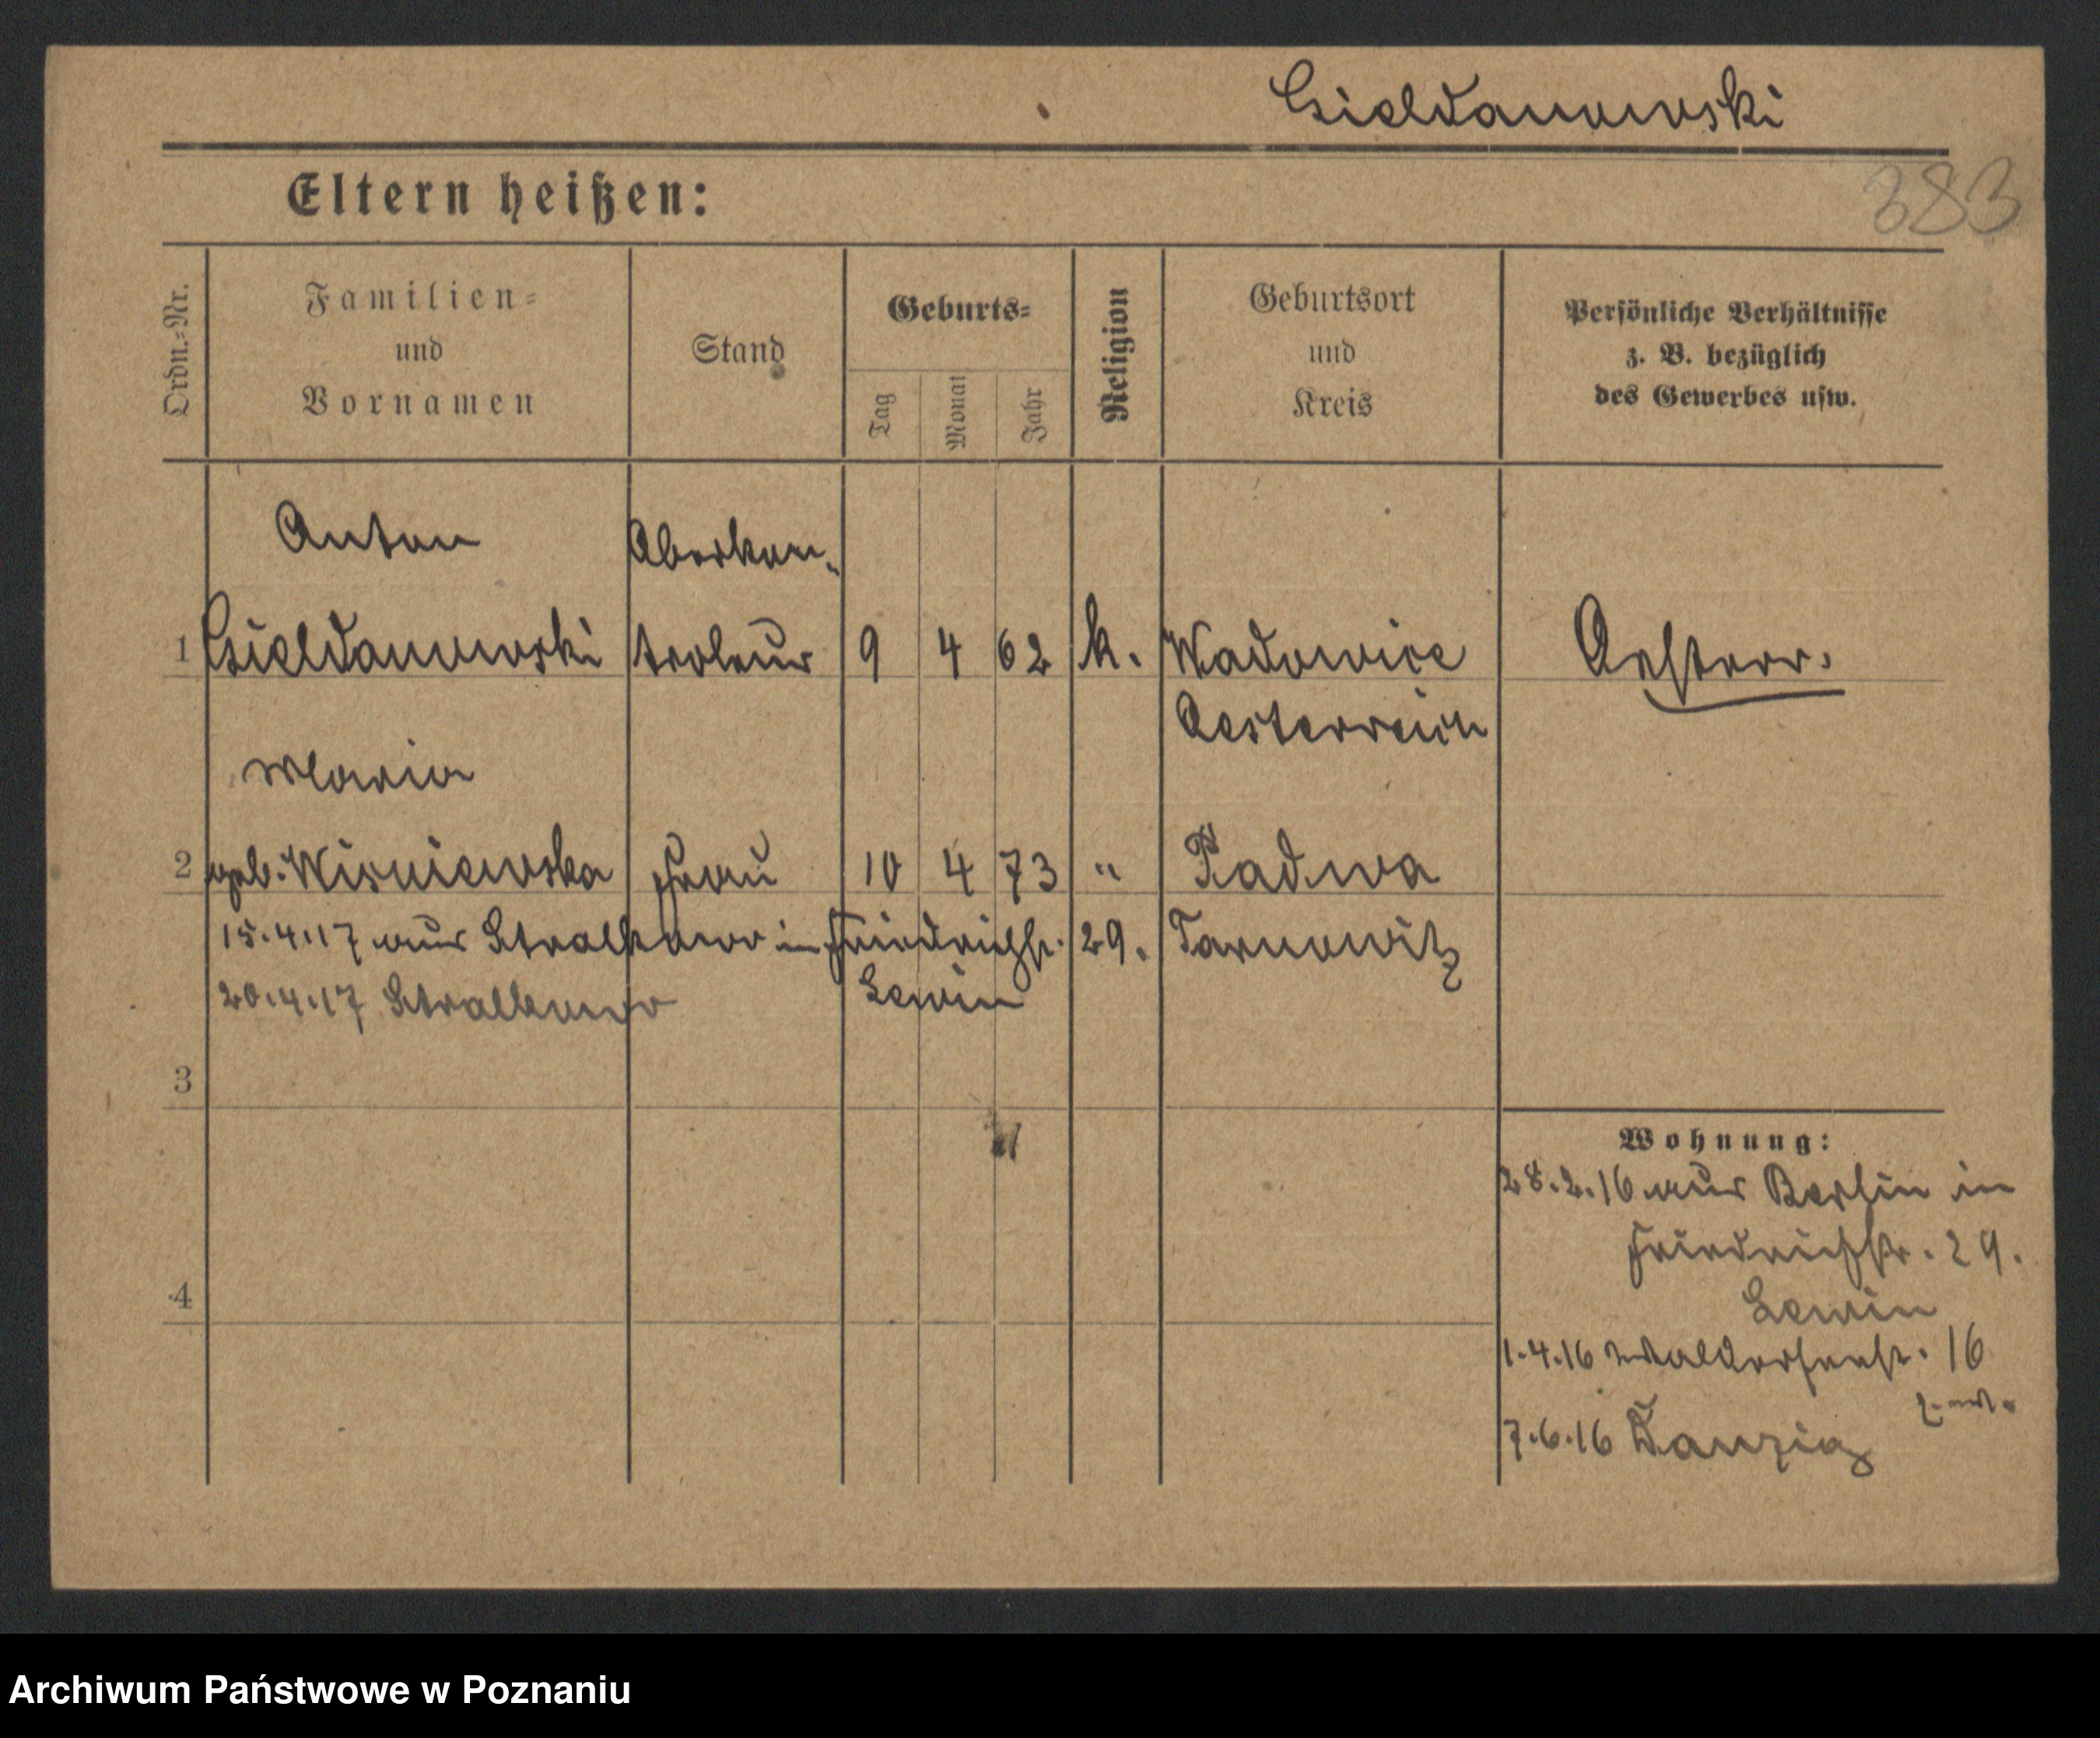 Gieldanowski
383
Eltern heißen:
Ordn.-Nr.
Familien-
und
Vornamen
Stand
Geburts-
Tag
Monat
Jahr
Religion
Geburtsort
und
Kreis
Persönliche Verhältnisse
z. B. bezüglich
des Gewerbes usw.
Anton
Oberkon-
1 Gieldanowski troleur 9 4 62 k. Wadowice Oesterr.
Oesterreich
Maria
2 geb. Wisniewska Frau 10 4 73 " Padwa
15.4.17 aus Stralkowo in Friedrichstr. 29. Tarnowitz
20.4.17 Stralkowo Lewin
3
Wohnung:
28.2.16 aus Berlin in
Friedrichstr. 29.
4
Lewin
1.4.16 Walderseestr. 16
7.6.16 Danzig
Archiwum Państwowe w Poznaniu